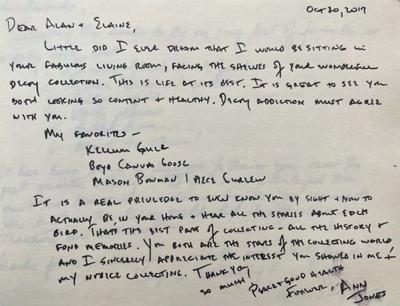 Oct 20, 2019
Dear Alan & Elaine,
Little did I ever dream that I would be sitting in
your fabulous living room, facing the shelves of your wonderful
decoy collection. This is life at its best. It is great to see you
both looking so content & healthy. Decoy addiction must agree
with you.
My favorites –
Kellum Gull
Boyd Canvas Goose
Mason Bowman 1 piece Curlew
It is a real priviledge to even know you by sight & now to
actually be in your home & hear all the stories about each
bird. Thats the best part of collecting – all the history &
fond memories. You both are the stars of the collecting world
and I sincerely appreciate the interest you showed in me &
my novice collecting. Thank you
so much! Peace & good health
Forever, Ann
Jones